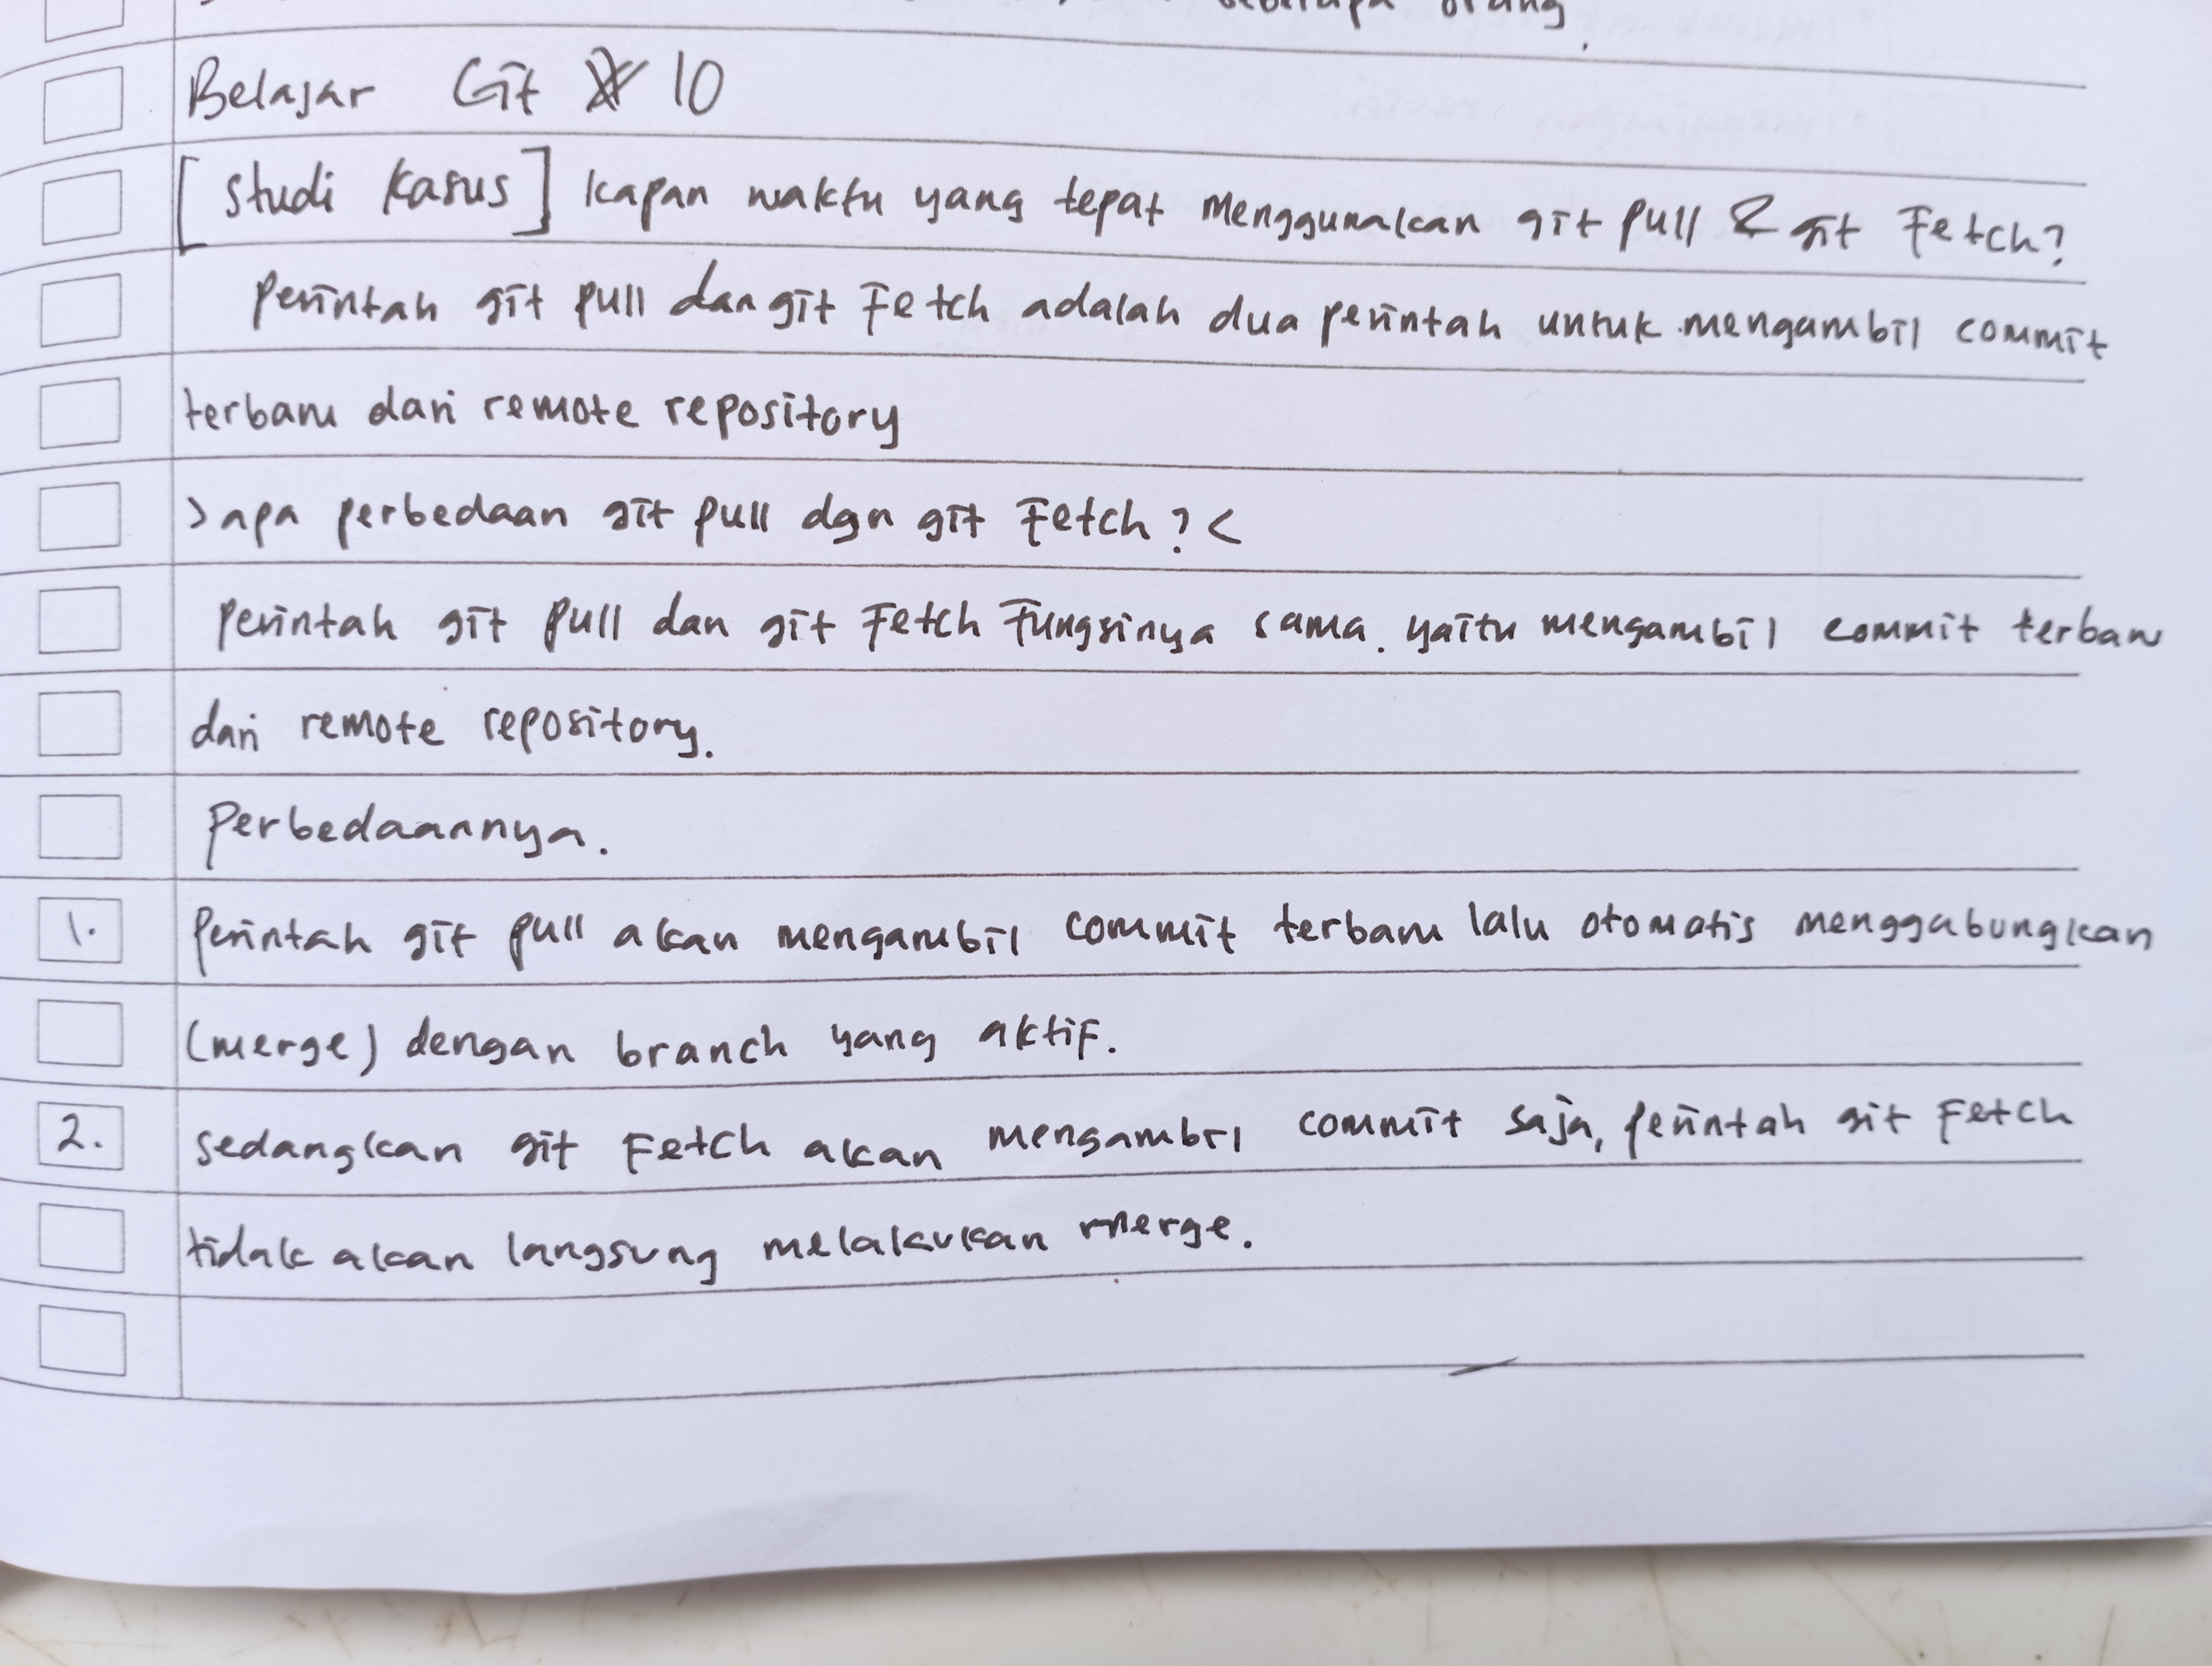 Belajar Git 10
[Studi kasus] kapan waktu yang tepat menggunakan git pull & git Fetch?
Perintah git pull dan git Fetch adalah dua perintah untuk mengambil commit
terbaru dari remote repository
>apa perbedaan git pull dgn git Fetch?<
Perintah git pull dan git Fetch Fungsinya sama. yaitu mengambil commit terbaru
dari remote repository.
Perbedaannya.
1. Perintah git pull akan mengambil commit terbaru lalu otomatis menggabungkan
(merge) dengan branch yang aktiF.
2. sedangkan git Fetch akan mengambil commit saja, perintah git Fetch
tidak akan langsung melalakukan merge.